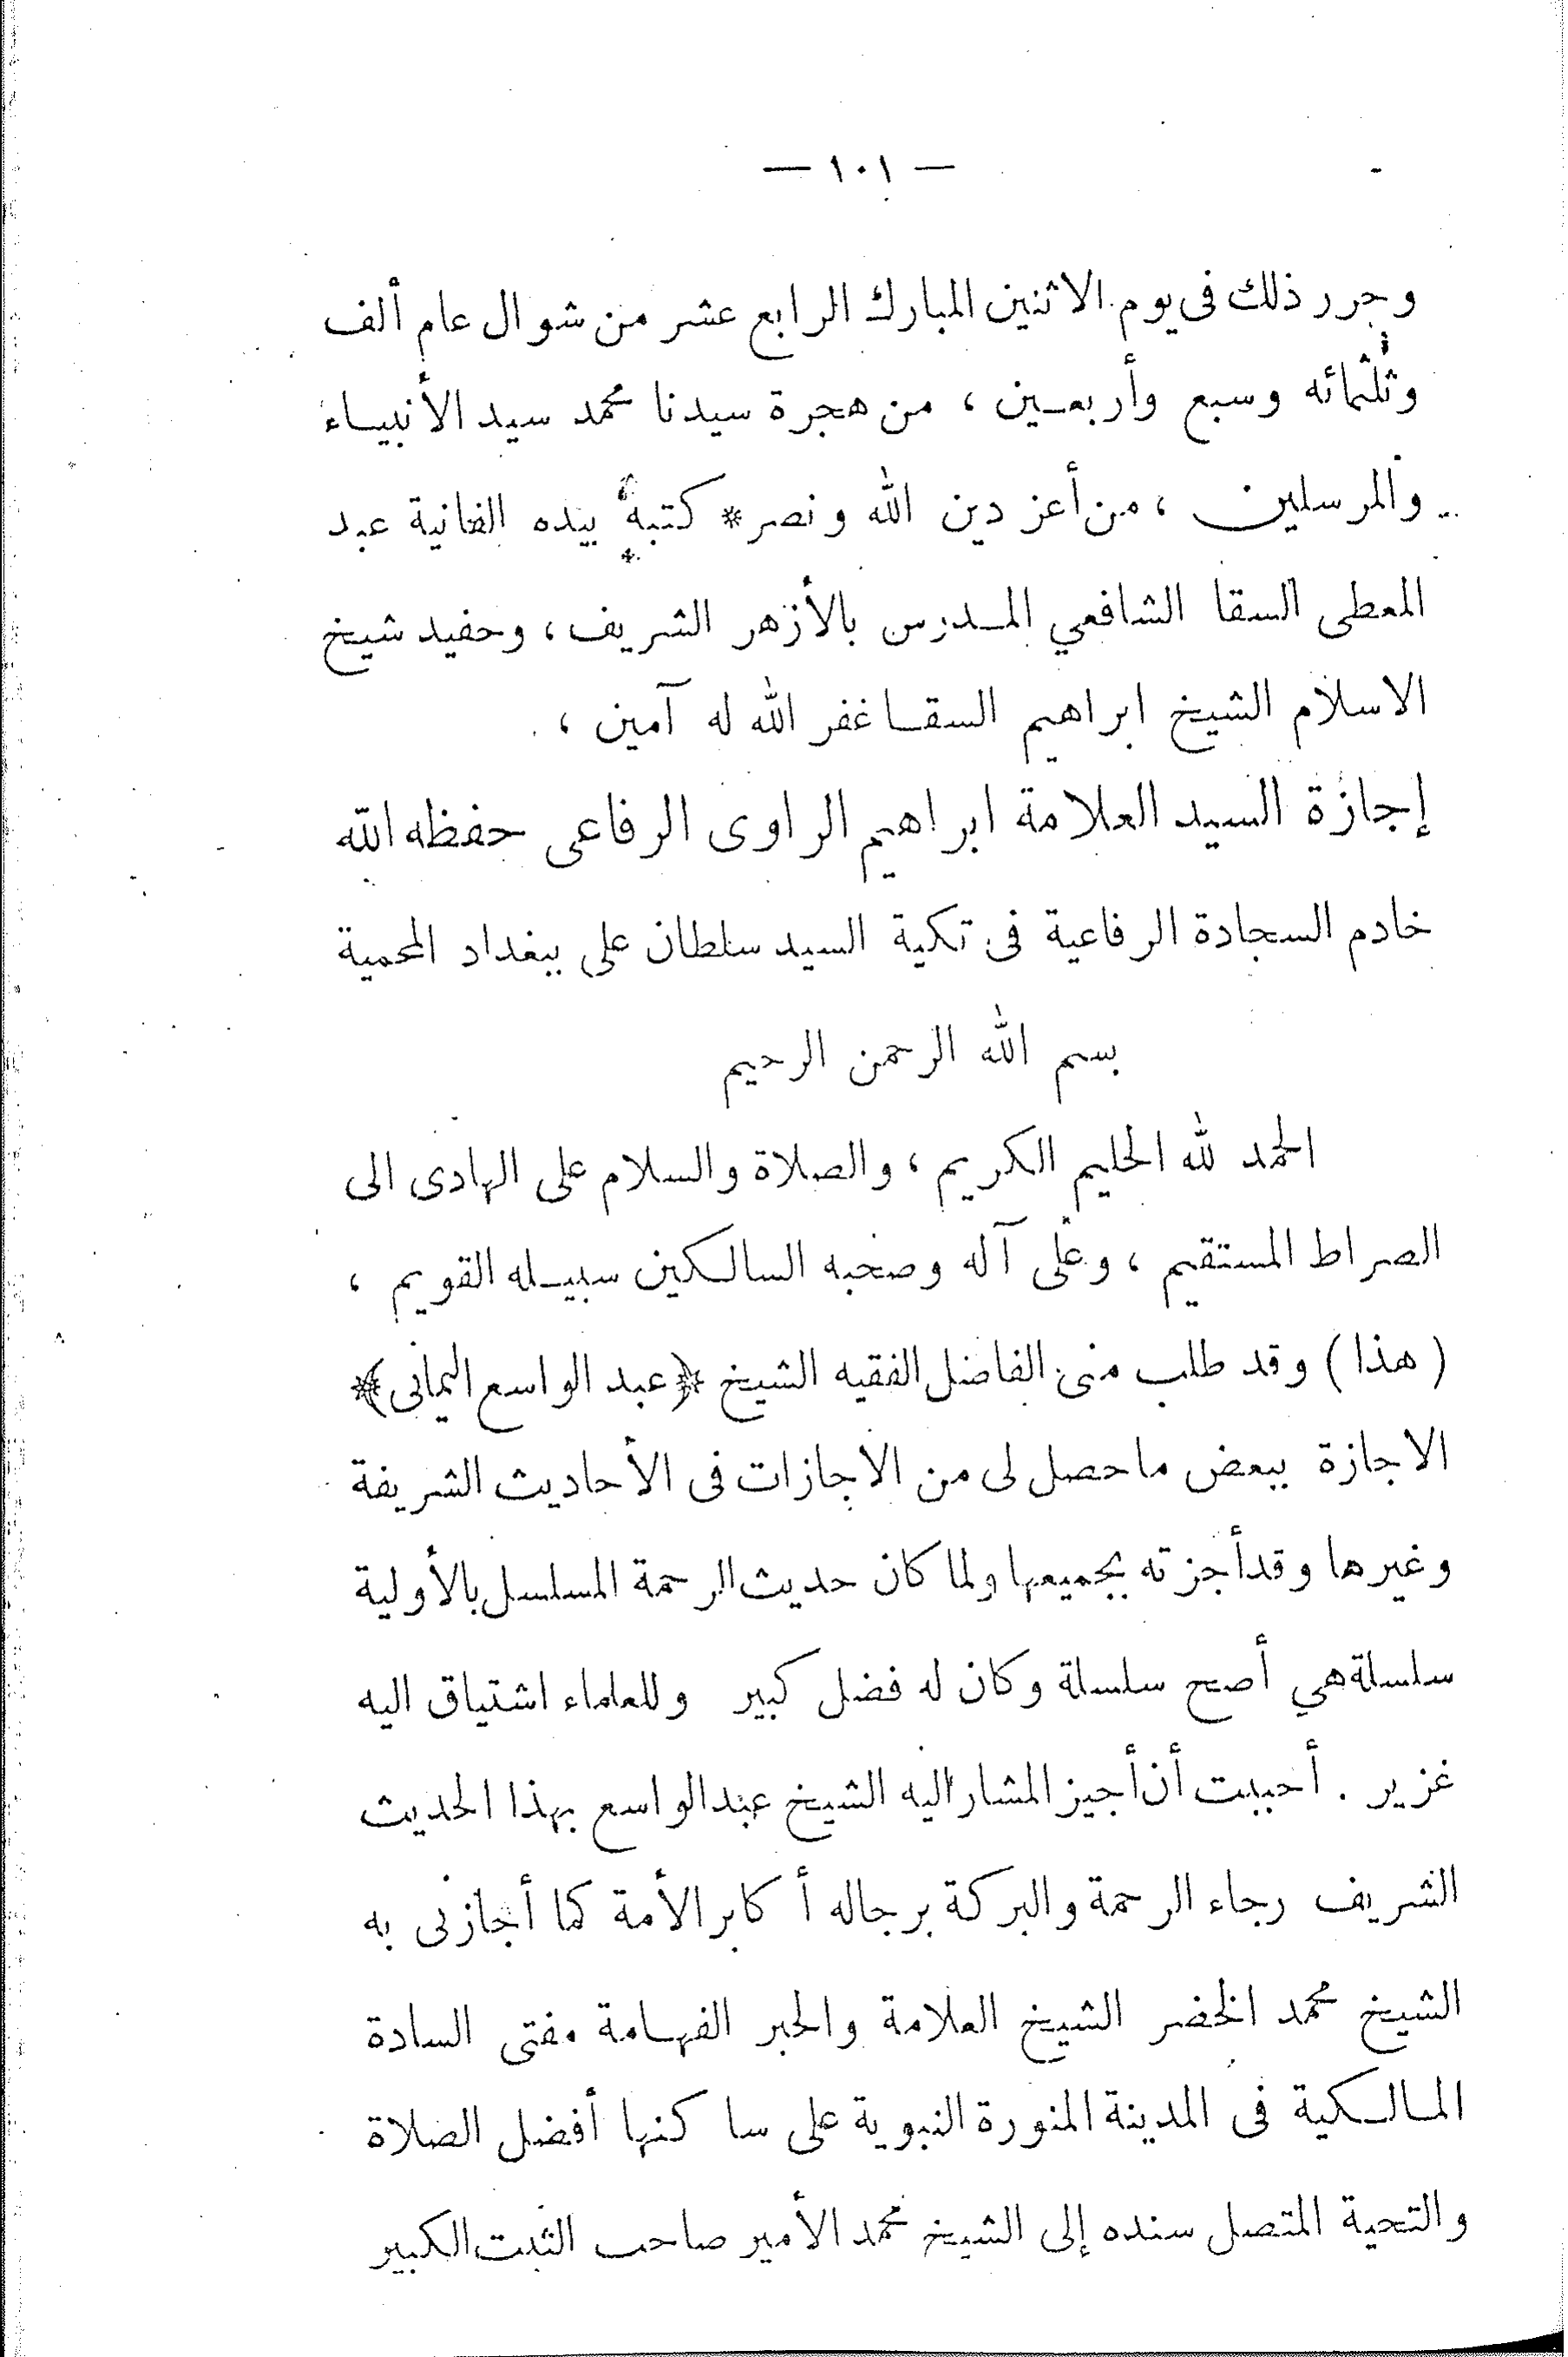 — ١٠١ —
وحرر ذلك فى يوم الاثنين المبارك الرابع عشر من شوال عام ألف
وثلثمائه وسبع وأربعين ، من هجرة سيدنا محمد سيد الأنبياء
والمرسلين ، من أعز دين الله ونصر * كتبه بيده الفانية عبد
المعطى السقا الشافعي المدرس بالأزهر الشريف ، وحفيد شيخ
الاسلام الشيخ ابراهيم السقا غفر الله له آمين ،
إجازة السيد العلامة ابراهيم الراوى الرفاعى حفظه الله
خادم السجادة الرفاعية فى تكية السيد سلطان على ببغداد المحمية
بسم الله الرحمن الرحيم
الحمد لله الحليم الكريم ، والصلاة والسلام على الهادى الى
الصراط المستقيم ، وعلى آله وصحبه السالكين سبيله القويم ،
( هذا ) وقد طلب منى الفاضل الفقيه الشيخ ﴿عبد الواسع اليمانى﴾
الاجازة ببعض ما حصل لى من الاجازات فى الأحاديث الشريفة
وغيرها وقد أجزته بجميعها ولما كان حديث الرحمة المسلسل بالأولية
سلسلة هي أصح سلسلة وكان له فضل كبير وللعلماء اشتياق اليه
غزير . أحببت أن أجيز المشار اليه الشيخ عبد الواسع بهذا الحديث
الشريف رجاء الرحمة والبركة برجاله أكابر الأمة كما أجازنى به
الشيخ محمد الخضر الشيخ العلامة والحبر الفهامة مفتى السادة
المالكية فى المدينة المنورة النبوية على ساكنها أفضل الصلاة
والتحية المتصل سنده إلى الشيخ محمد الأمير صاحب الثبت الكبير